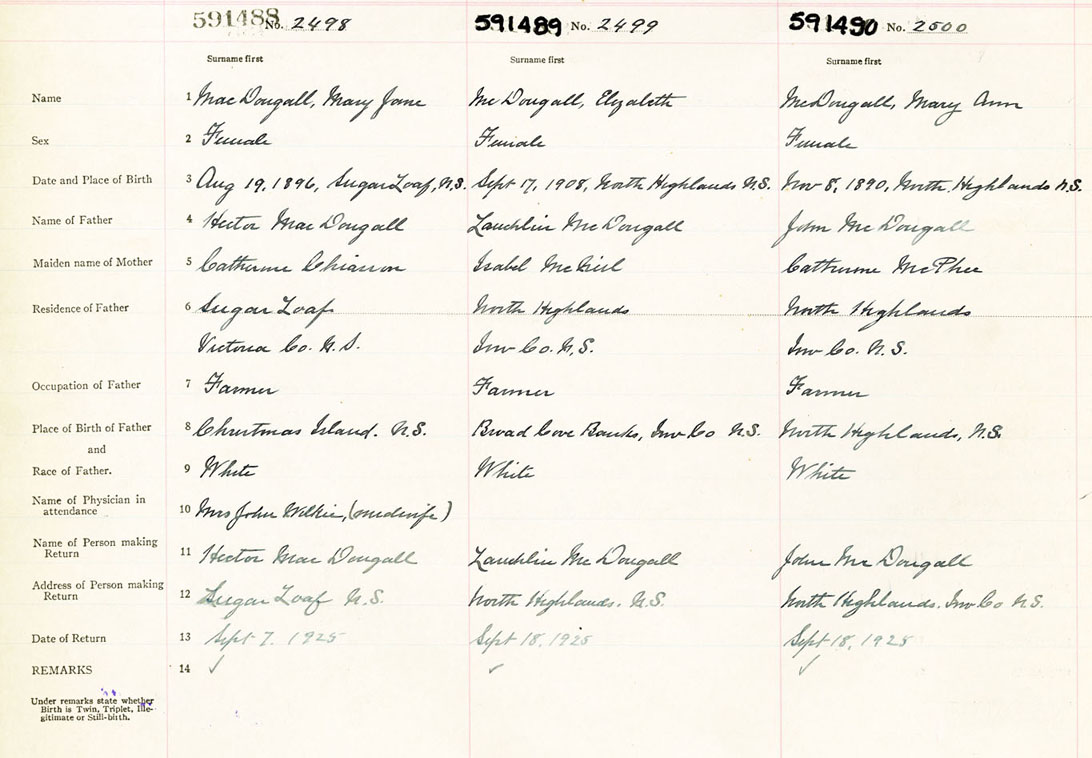 591488 No. 2498 591489 No. 2499 591490 No. 2500
Surname first Surname first Surname first
Name 1 MacDougall, Mary Jane McDougall, Elizabeth McDougall, Mary Ann
Sex 2 Female Female Female
Date and Place of Birth 3 Aug 19, 1896, Sugar Loaf, N.S. Sept 17, 1908, North Highlands N.S. Nov 8, 1890, North Highlands N.S.
Name of Father 4 Hector MacDougall Lauchlin McDougall John McDougall
Maiden name of Mother 5 Catherine Chiasson Isabel Catherine McPhee
Residence of Father 6 Sugar Loaf North Highlands North Highlands
Victoria Co. N.S. Inv Co. N.S. Inv Co. N.S.
Occupation of Father 7 Farmer Farmer Farmer
Place of Birth of Father 8 Christmas Island. N.S. Broad Cove Banks, Inv Co N.S. North Highlands, N.S.
and
Race of Father. 9 White White White
Name of Physician in
attendance 10 Mrs John Wilkie, (midwife)
Name of Person making
Return 11 Hector MacDougall Lauchlin McDougall John McDougall
Address of Person making
Return 12 Sugar Loaf N.S. North Highlands. N.S. North Highlands. Inv Co N.S.
Date of Return 13 Sept 7, 1925 Sept 18, 1925 Sept 18, 1925
REMARKS 14 ✓ ✓ ✓
Under remarks state whether
Birth is Twin, Triplet, Ille-
gitimate or Still-birth.